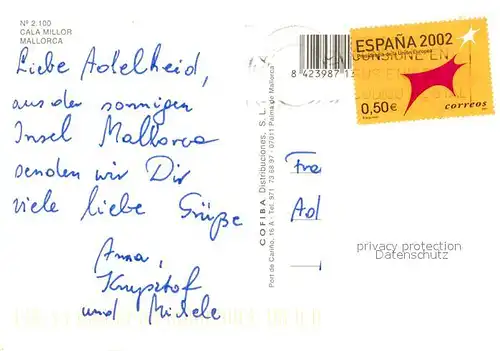 Nº 2.100
CALA MILLOR
MALLORCA
Liebe Adelheid,
aus der sonnigen
Insel Mallorca
senden wir Dir
viele liebe Grüße
Anna,
Krzysztof
und Michele
COFIBA Distribuciones, S.L.
Port de Cariño, 16 A - Tel. 971 73 68 97 - 07011 Palma de Mallorca
8 423987 1
ESPAÑA 2002
0,50€
correos
Fra
Ad
privacy protection
Datenschutz